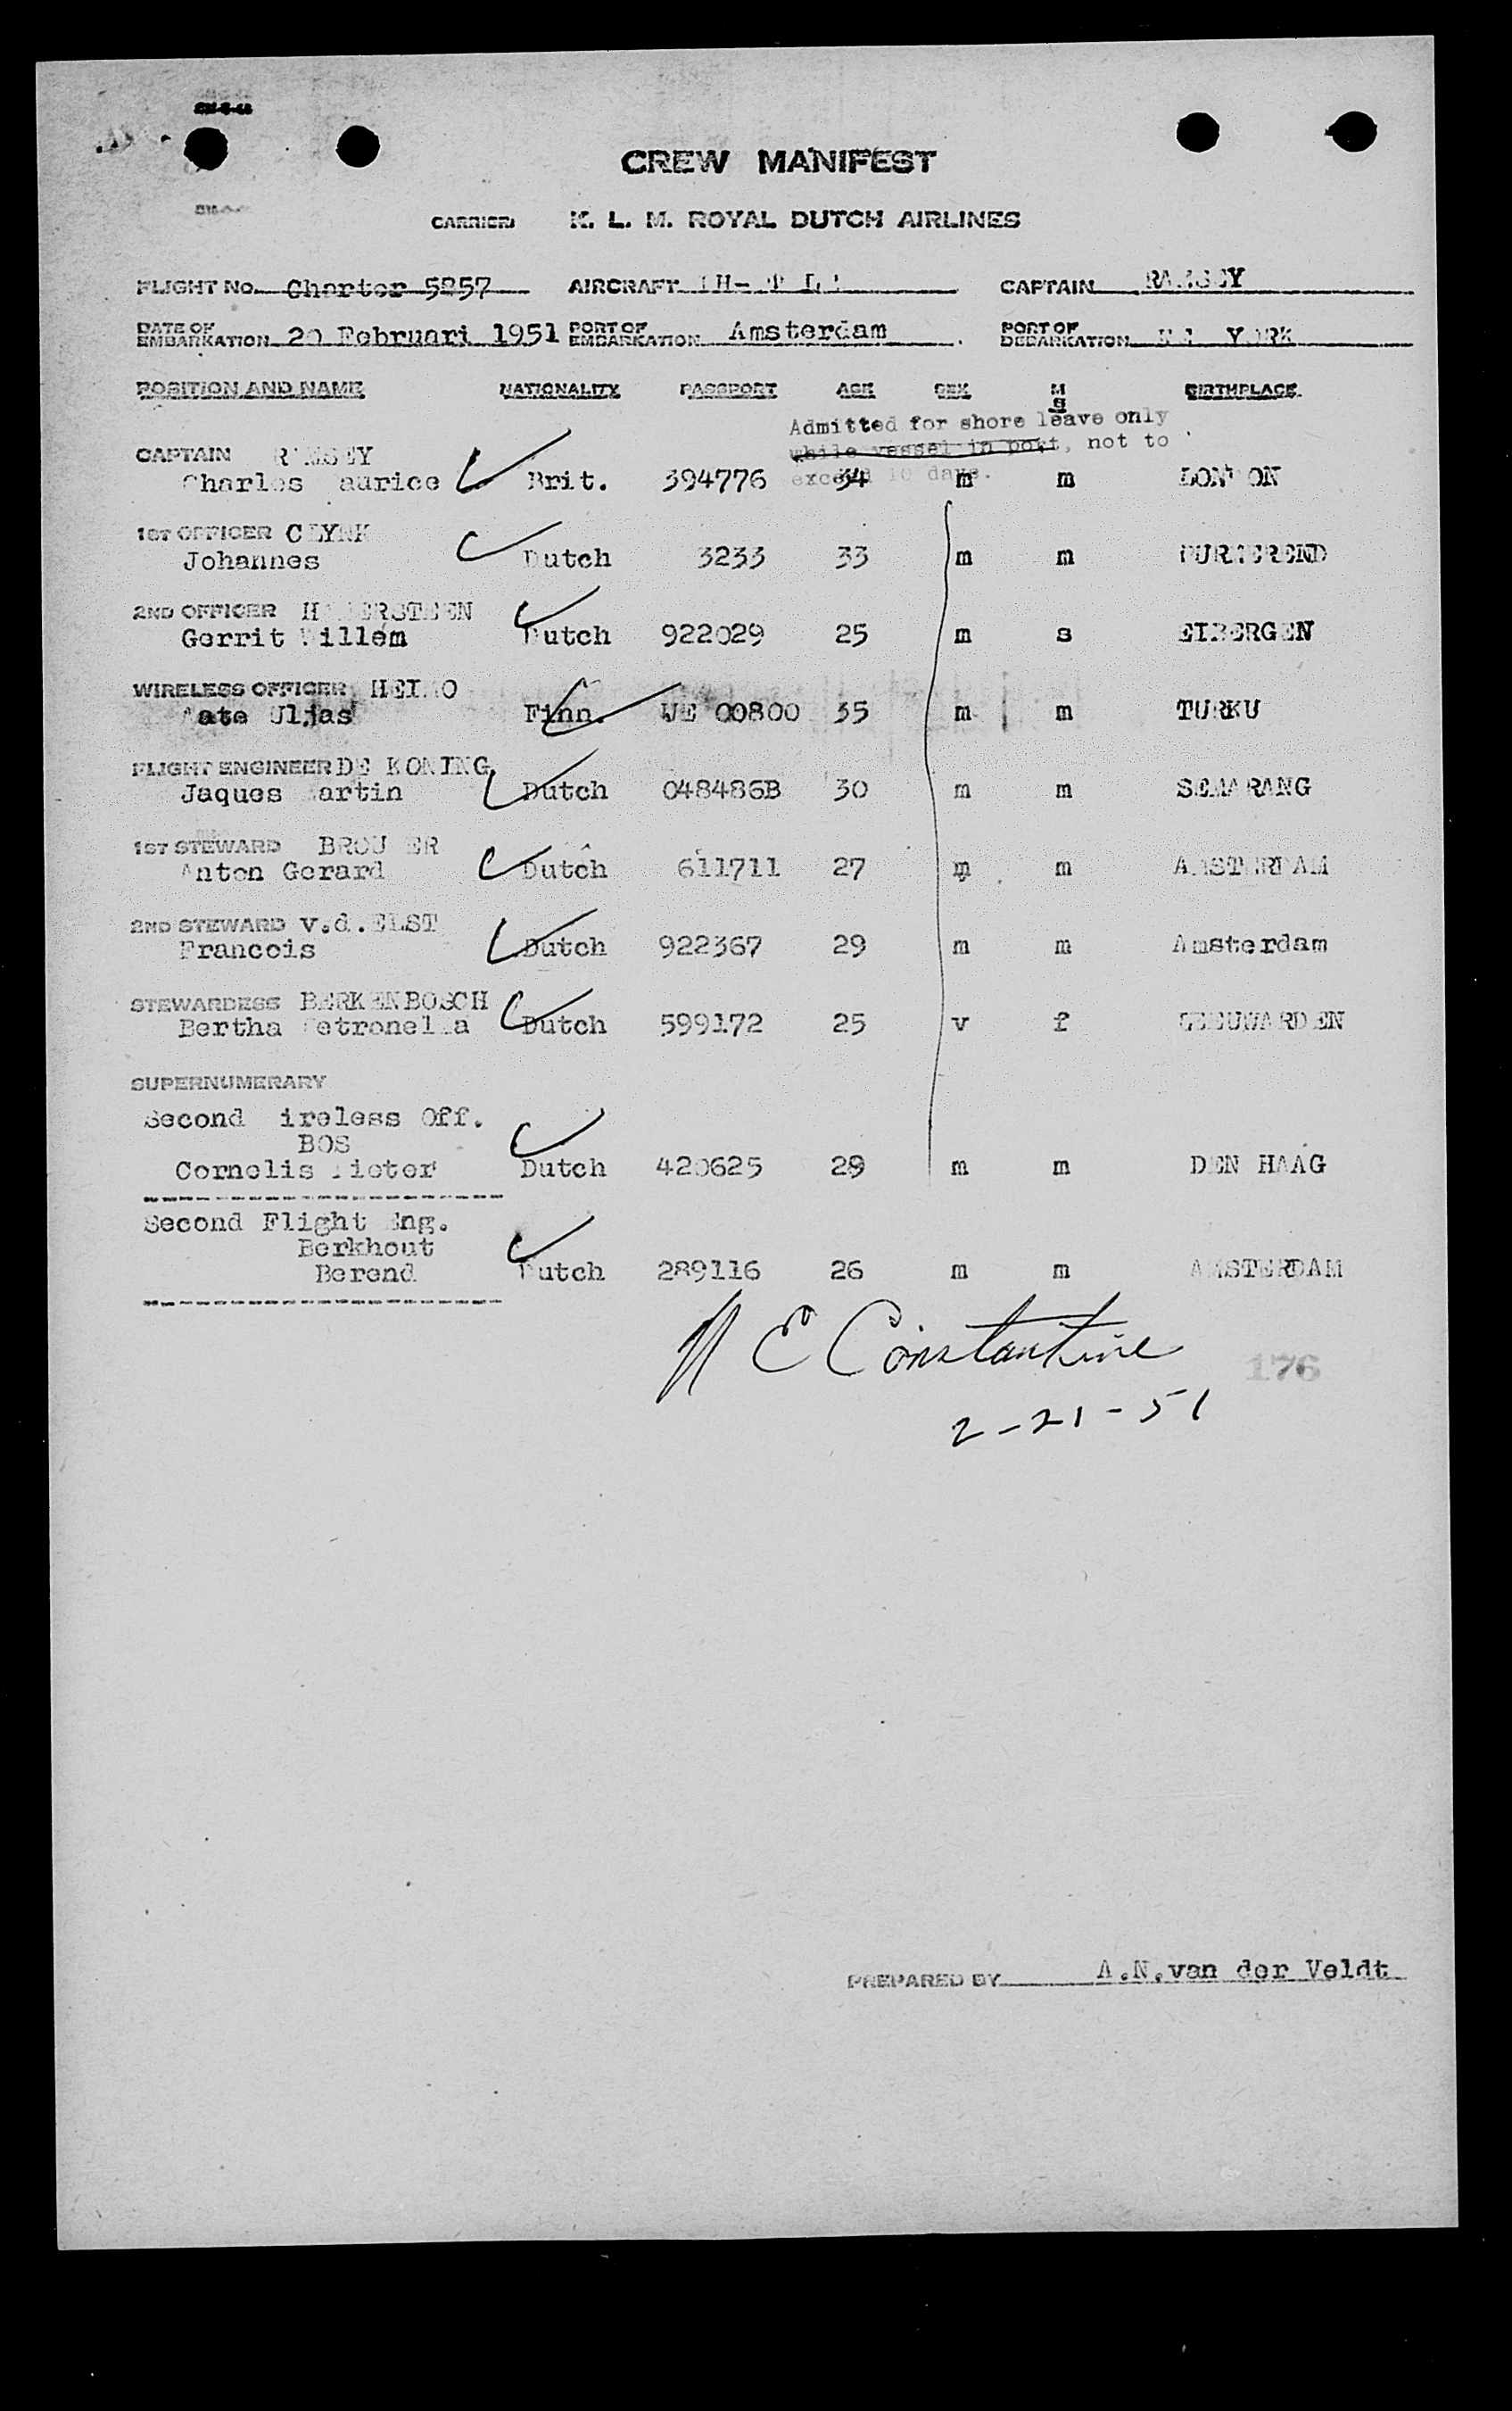 CREW MANIFEST
CARRIER K. L. M. ROYAL DUTCH AIRLINES
FLIGHT No. Charter 5857 AIRCRAFT CAPTAIN RAMSEY
DATE OF EMBARKATION 20 Februari 1951 PORT OF EMBARKATION Amsterdam PORT OF DEBARKATION YORK
POSITION AND NAME NATIONALITY PASSPORT AGE SEX M S BIRTHPLACE
Admitted for shore leave only
while vessel in port, not to
exceed 10 days.
CAPTAIN RAMSEY
Charles Maurice Brit. 394776 34 m m LONDON
1ST OFFICER
Johannes Dutch 3233 33 m m PURMEREND
2ND OFFICER
Gerrit Willem Dutch 922029 25 m s EIBERGEN
WIRELESS OFFICER
Uljas Finn. UE 00800 35 m m TURKU
FLIGHT ENGINEER DE KONING
Jaques Martin Dutch 048486B 30 m m SEMARANG
1ST STEWARD BROUWER
Anton Gerard Dutch 611711 27 m m AMSTERDAM
2ND STEWARD v.d.ELST
Francois Dutch 922367 29 m m Amsterdam
STEWARDESS BERKENBOSCH
Bertha Petronella Dutch 599172 25 v f LEEUWARDEN
SUPERNUMERARY
Second Wireless Off.
BOS
Cornelis Pieter Dutch 420625 29 m m DEN HAAG
Second Flight Eng.
Berkhout
Berend Dutch 289116 26 m m AMSTERDAM
N E Constantine
176
2-21-51
PREPARED BY A.N.van der Veldt